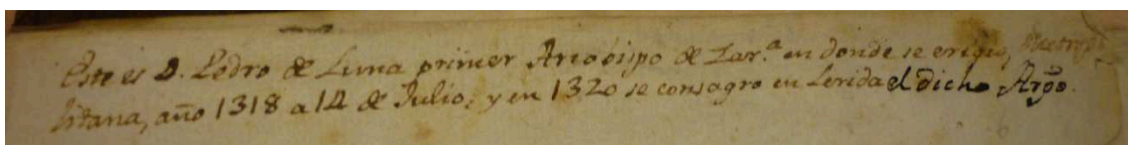 Este es D. Pedro de Luna primer Arzobispo de Zar.ª en donde se erigio, Metropo
litana, año 1318 a 14 de Julio; y en 1320 se consagro en Lerida el dicho Arpo.